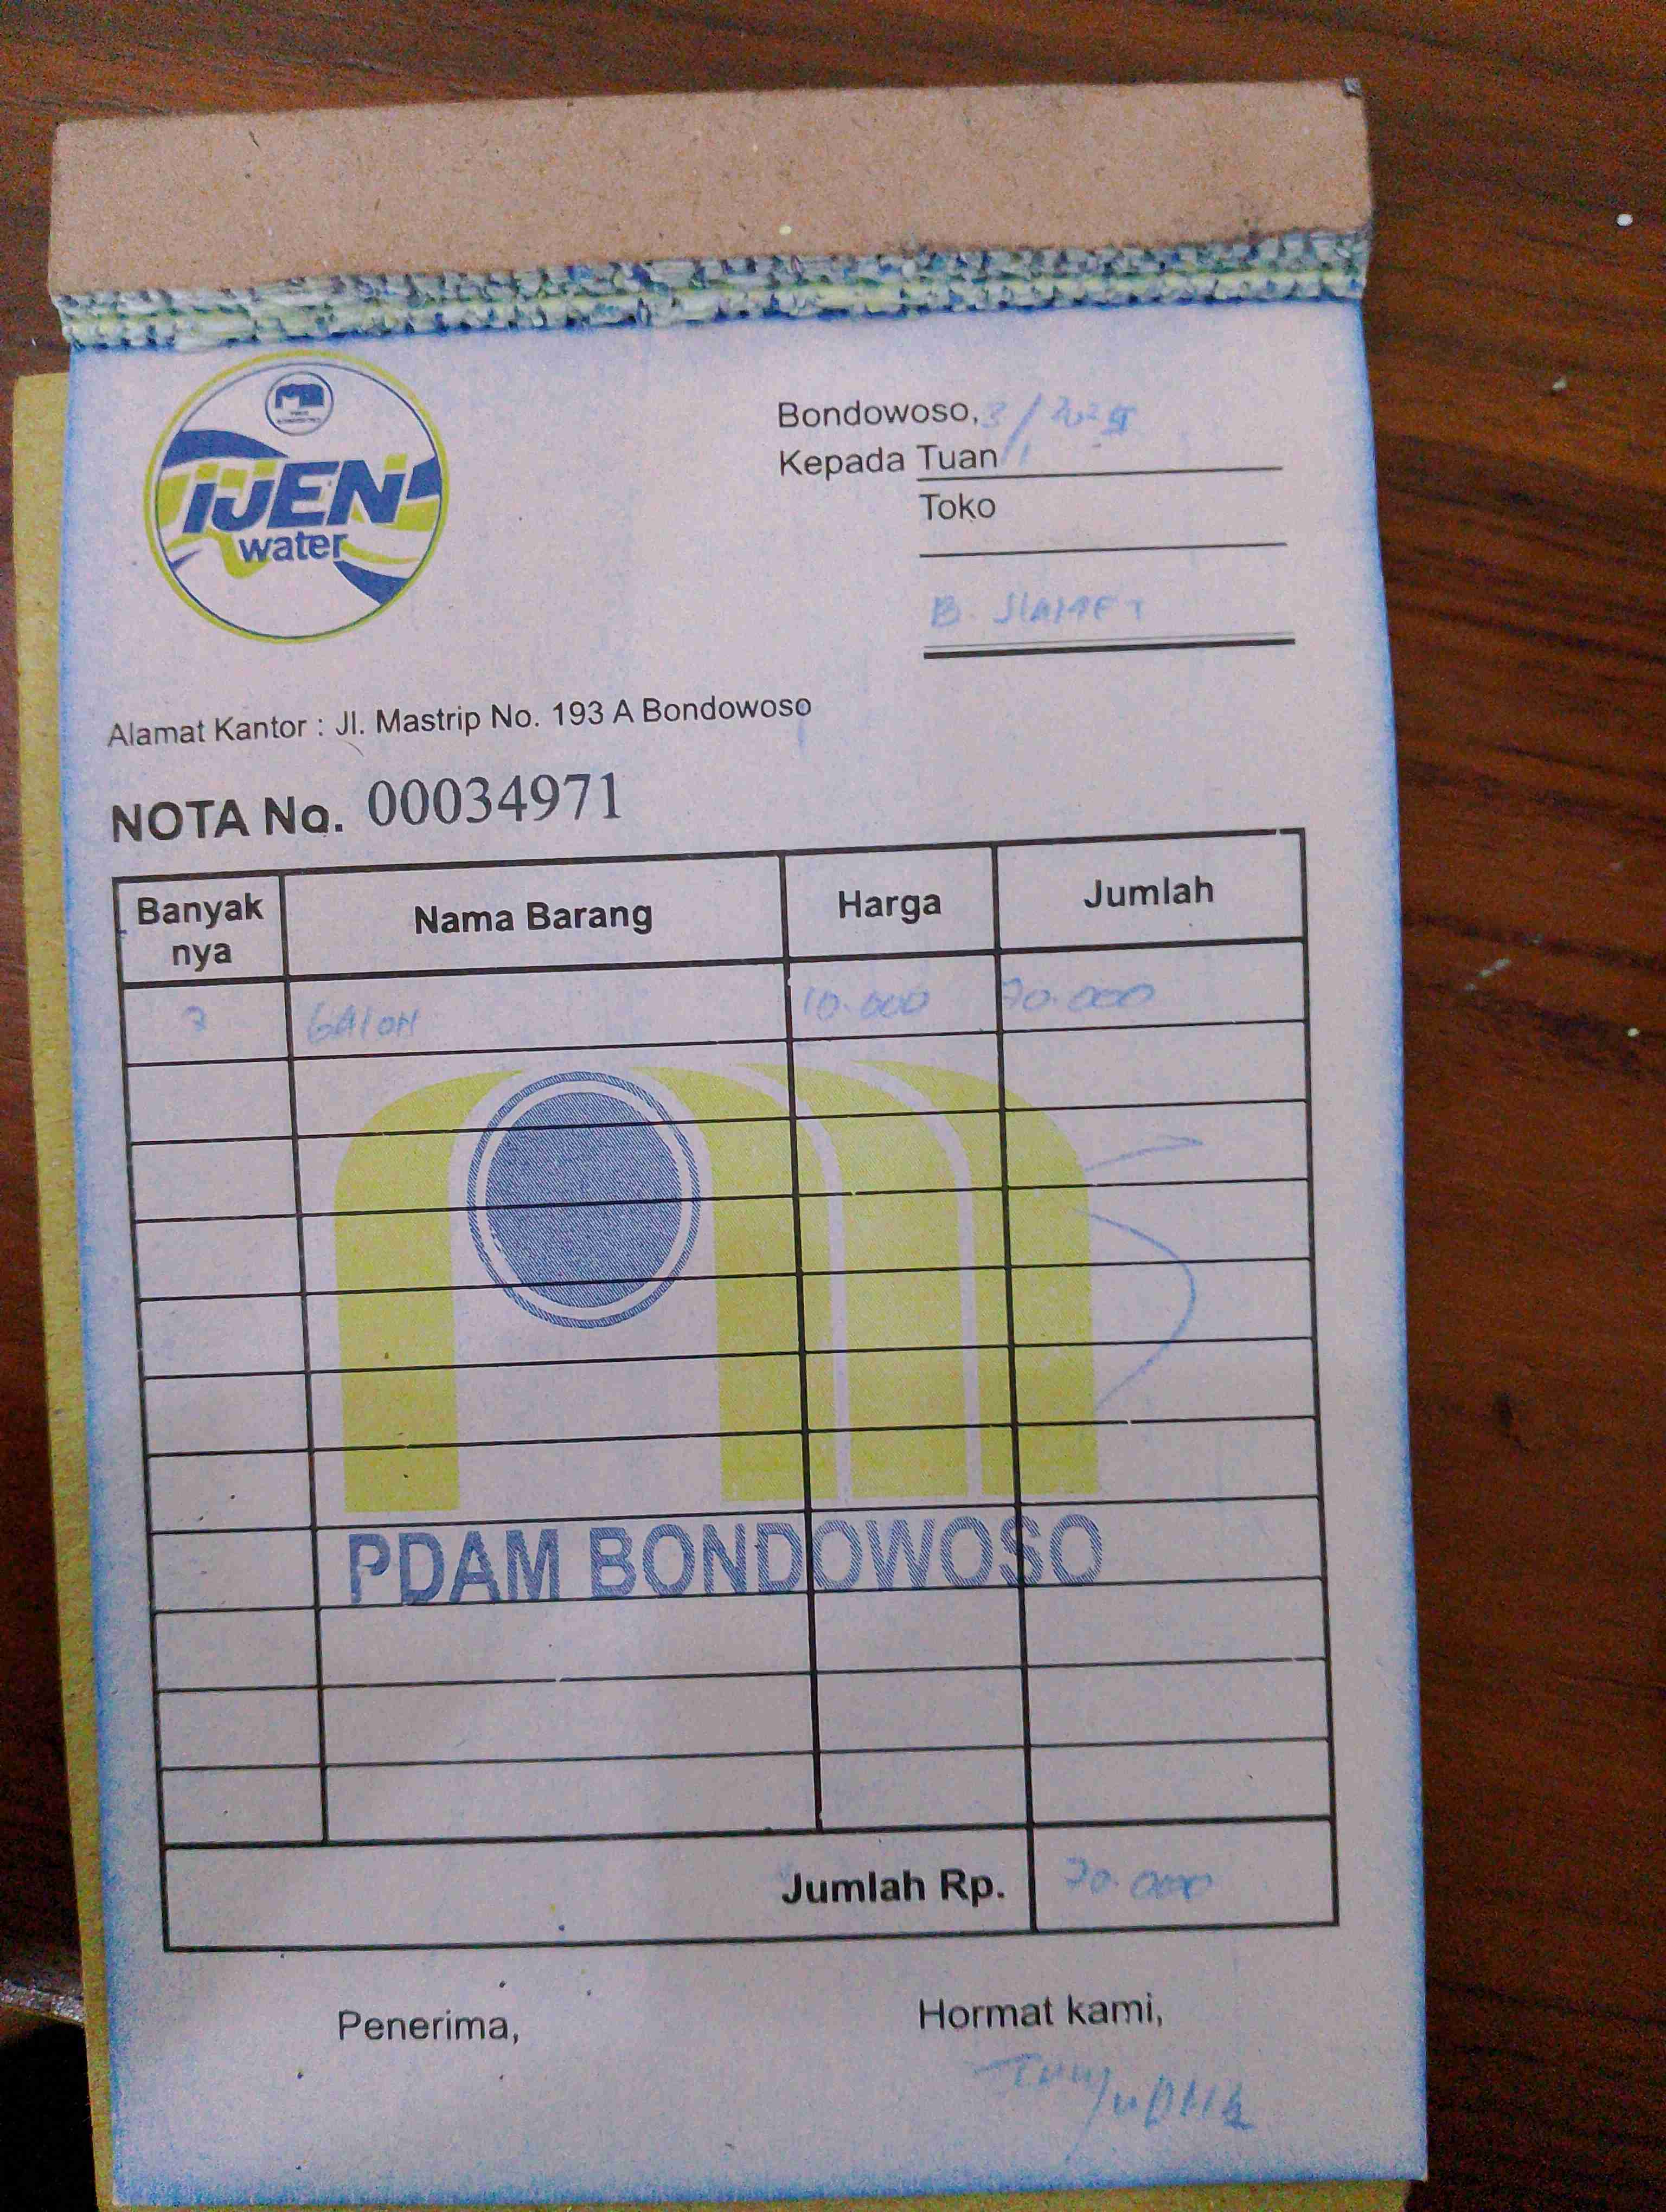 IJEN
water
Bondowoso,
Kepada Tuan
Toko
B. SLAMET
Alamat Kantor : Jl. Mastrip No. 193 A Bondowoso
NOTA No. 00034971
Banyak nya Nama Barang Harga Jumlah
7 GALON 10.000 70.000
PDAM BONDOWOSO
Jumlah Rp. 70.000
Penerima, Hormat kami,